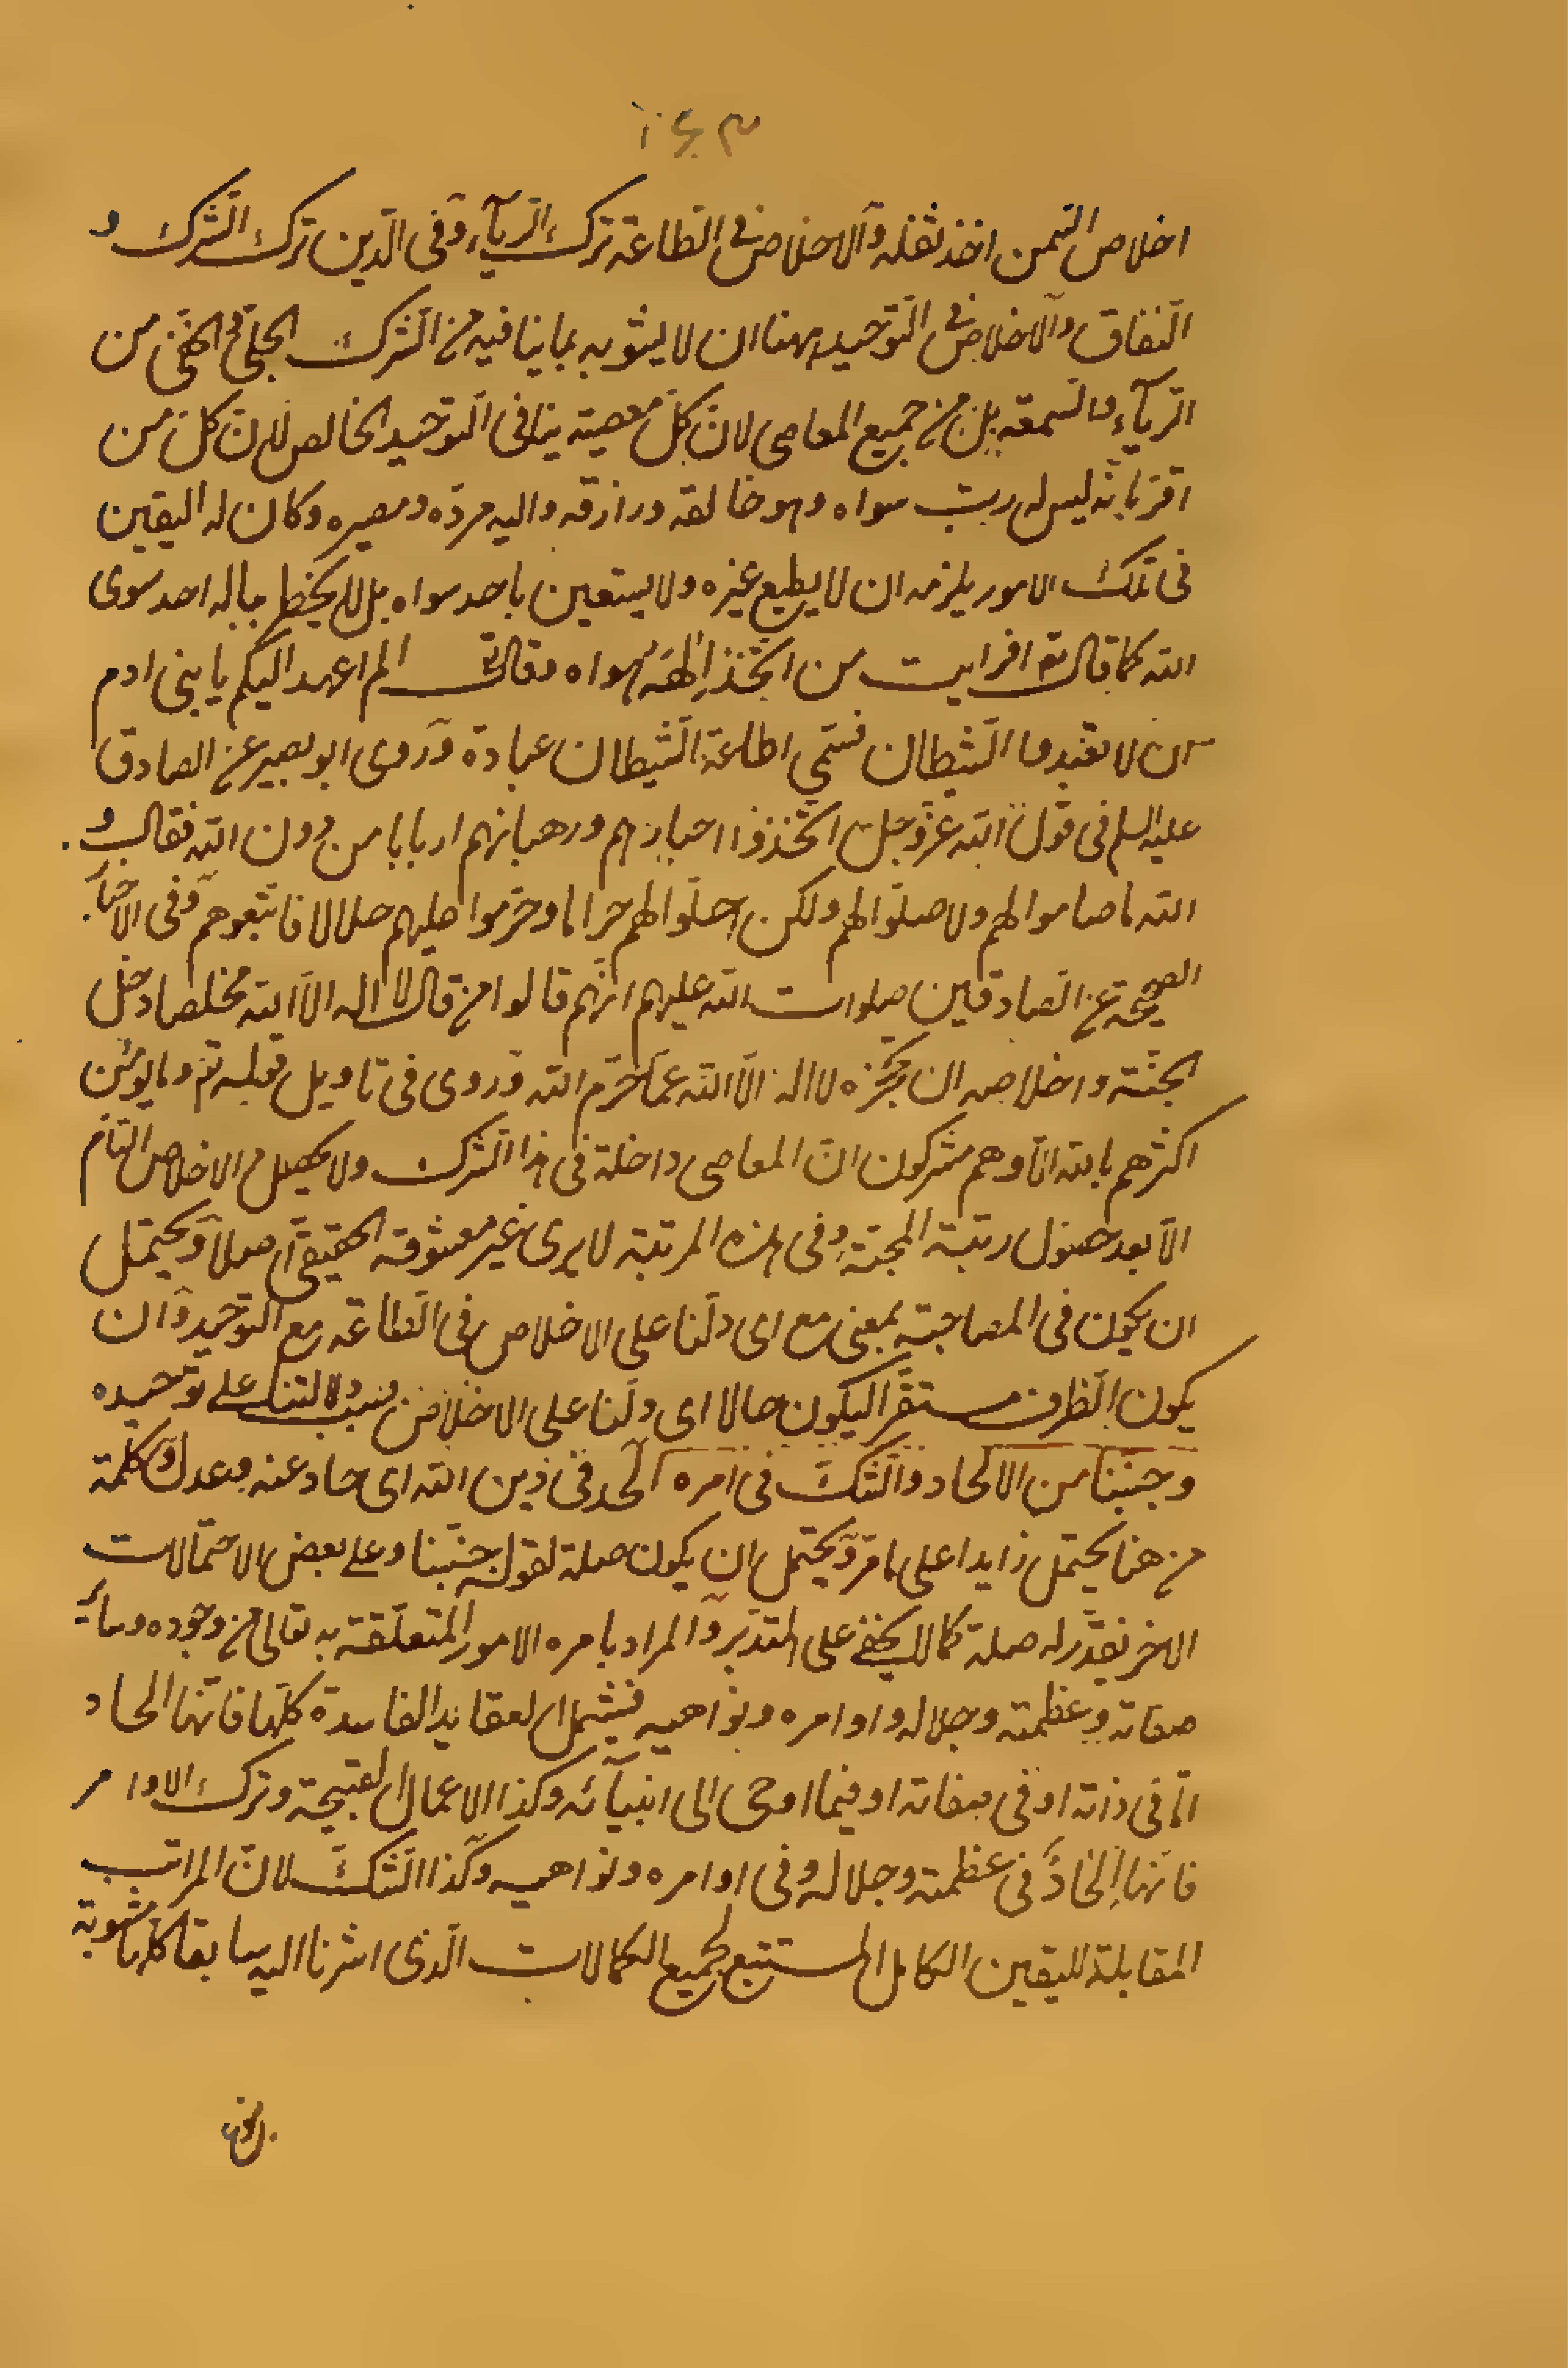 اخلاص السمن اخذ ثفله والاخلاص فى الطاعة ترك الريآء وفى الدين ترك الشرك و
النفاق والاخلاص فى التوحيد ههنا ان لا يشوبه بما ينافيه من الشرك الجلى والخفى من
الريآء والسمعة بل من جميع المعاصى لان كل معصية ينافى التوحيد الخالص لان كل من
اقر بانه ليس له رب سواه وهو خالقه ورازقه واليه مرده ومصيره وكان له اليقين
فى تلك الامور يلزمه ان لا يطيع غيره ولا يستعين باحد سواه بل لا يخطر بباله احد سوى
الله كما قال تع افرايت من اتخذ الهه هواه وقال تع الم اعهد اليكم يا بنى ادم
ان لا تعبدوا الشيطان فسمى اطاعة الشيطان عبادة وروى ابو بصير عن الصادق
عليه السلم فى قول الله عز وجل اتخذوا احبارهم ورهبانهم اربابا من دون الله فقال و
الله ما صاموا لهم ولا صلوا لهم ولكن احلوا لهم حراما وحرموا عليهم حلالا فاتبعوهم وفى الاخبار
الصحيحة عن الصادقين صلوات الله عليهم انهم قالوا من قال لا اله الا الله مخلصا دخل
الجنة واخلاصه ان يحجزه لا اله الا الله عما حرم الله وروى فى تاويل قوله تع وما يومن
اكثرهم بالله الا وهم مشركون ان المعاصى داخلة فى هذا الشرك ولا يحصل الاخلاص التام
الا بعد حصول رتبة المحبة وفى هذه المرتبة لا يرى غير معشوقه الحقيقى اصلا ويحتمل
ان يكون فى المصاحبة بمعنى مع اى دلنا على الاخلاص فى الطاعة مع التوحيد وان
يكون الظرف مستقرا ليكون حالا اى دلنا على الاخلاص بسبب دلالتنا على توحيده
وجنبنا من الالحاد والشك فى امره الحد فى دين الله اى حاد عنه وعدل وكلمة
من هنا يحتمل زايدا على ما مر ويحتمل ان يكون صلة لقوله جنبنا وعلى بعض الاحتمالات
الاخر نقدر له صلة كما لا يخفى على المتدبر والمراد بامره الامور المتعلقة به تعالى من وجوده وساير
صفاته وعظمته وجلاله واوامره ونواهيه فيشمل العقايد الفاسدة كلها فانها الحاد
اما فى ذاته او فى صفاته او فيما اوحى الى انبيآئه وكذا الاعمال القبيحة وترك الاوامر
فانها الحاد فى عظمته وجلاله وفى اوامره ونواهيه وكذا الشك لان المراتب
المقابلة لليقين الكامل المستتبع لجميع الكمالات الذى اشرنا اليه سابقا كلها مشوبة